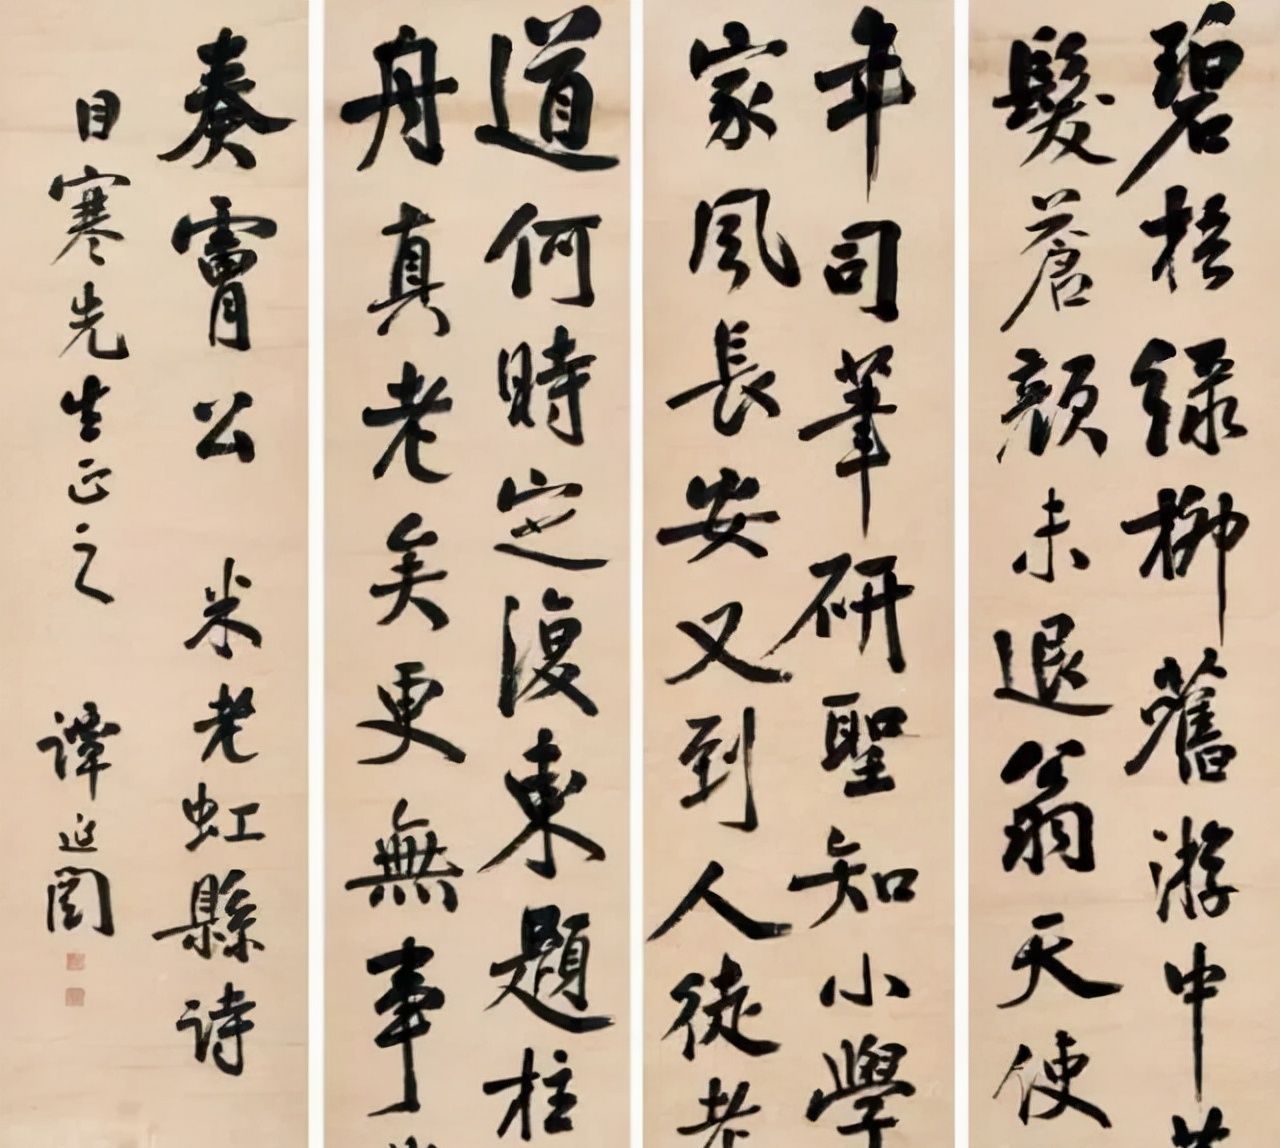 碧梧綠柳舊游中
髮蒼顏未退翁天使
年司筆研聖知小學
家風長安又到人徒老
道何時定復東題柱
舟真老矣更無事
奏膚公 米老虹縣詩
目寒先生正之 譚延闓